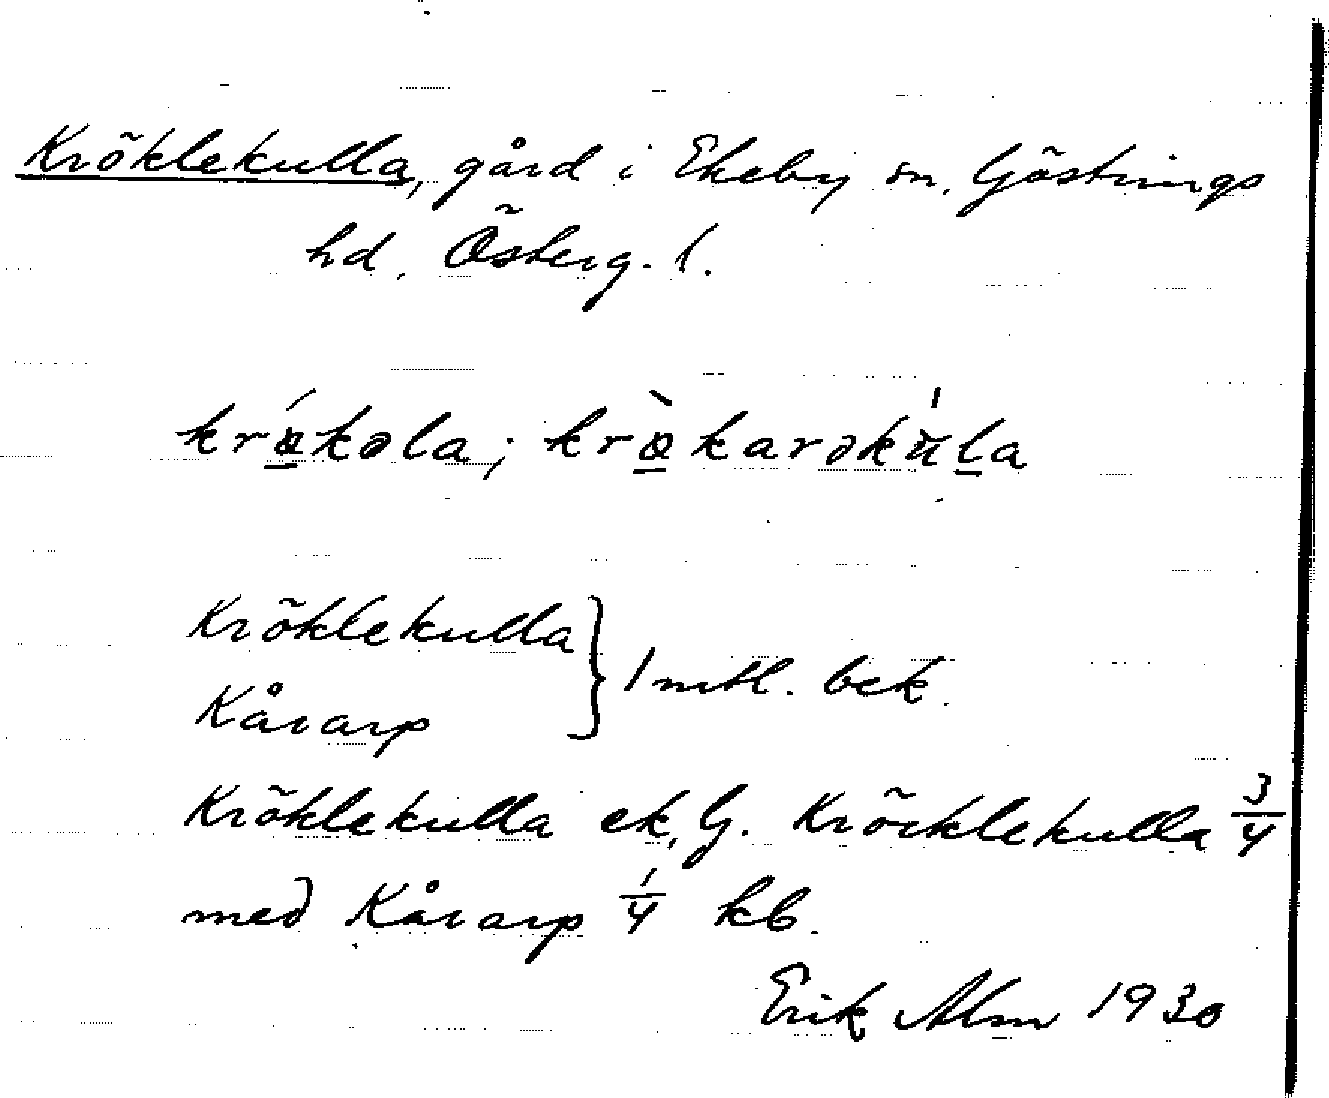 Kröklekulla, gård i Ekeby sn. Göstrings
hd. Österg. l.
krǿ̲kəla; krø̲̀karəkùl̲a
Kröklekulla
Kårarp } 1 mtl. bek.
Kröklekulla ek, G. Kröcklekulla 3/4
med Kårarp 1/4 kb.
Erik Alm 1930